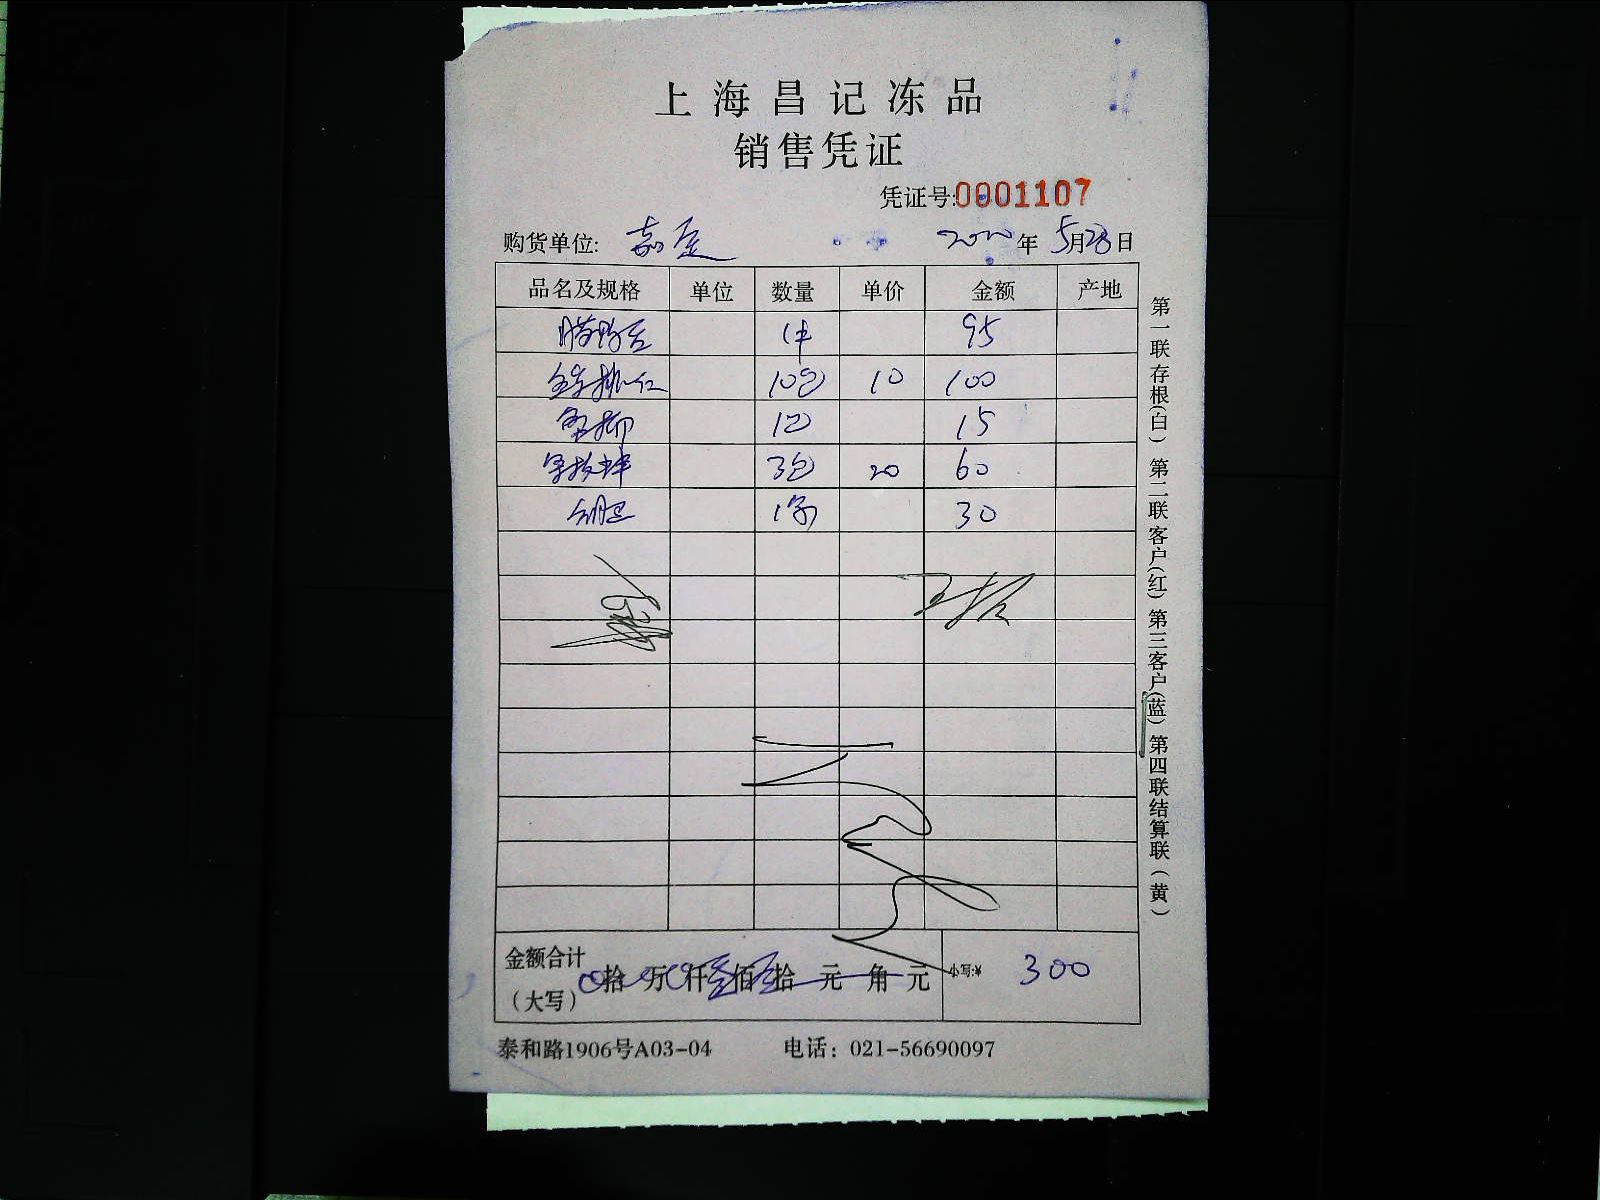 上海昌记冻品
销售凭证
凭证号:0001107
购货单位: 嘉定 2020年5月28日
品名及规格 单位 数量 单价 金额 产地
1件 95
10包 10 100
1包 15
3包 20 60
30
金额合计
(大写) 拾 万 仟 佰 拾 元 角 元 小写:¥ 300
泰和路1906号A03-04 电话: 021-56690097
第一联存根(白) 第二联客户(红) 第三客户(蓝) 第四联结算联(黄)